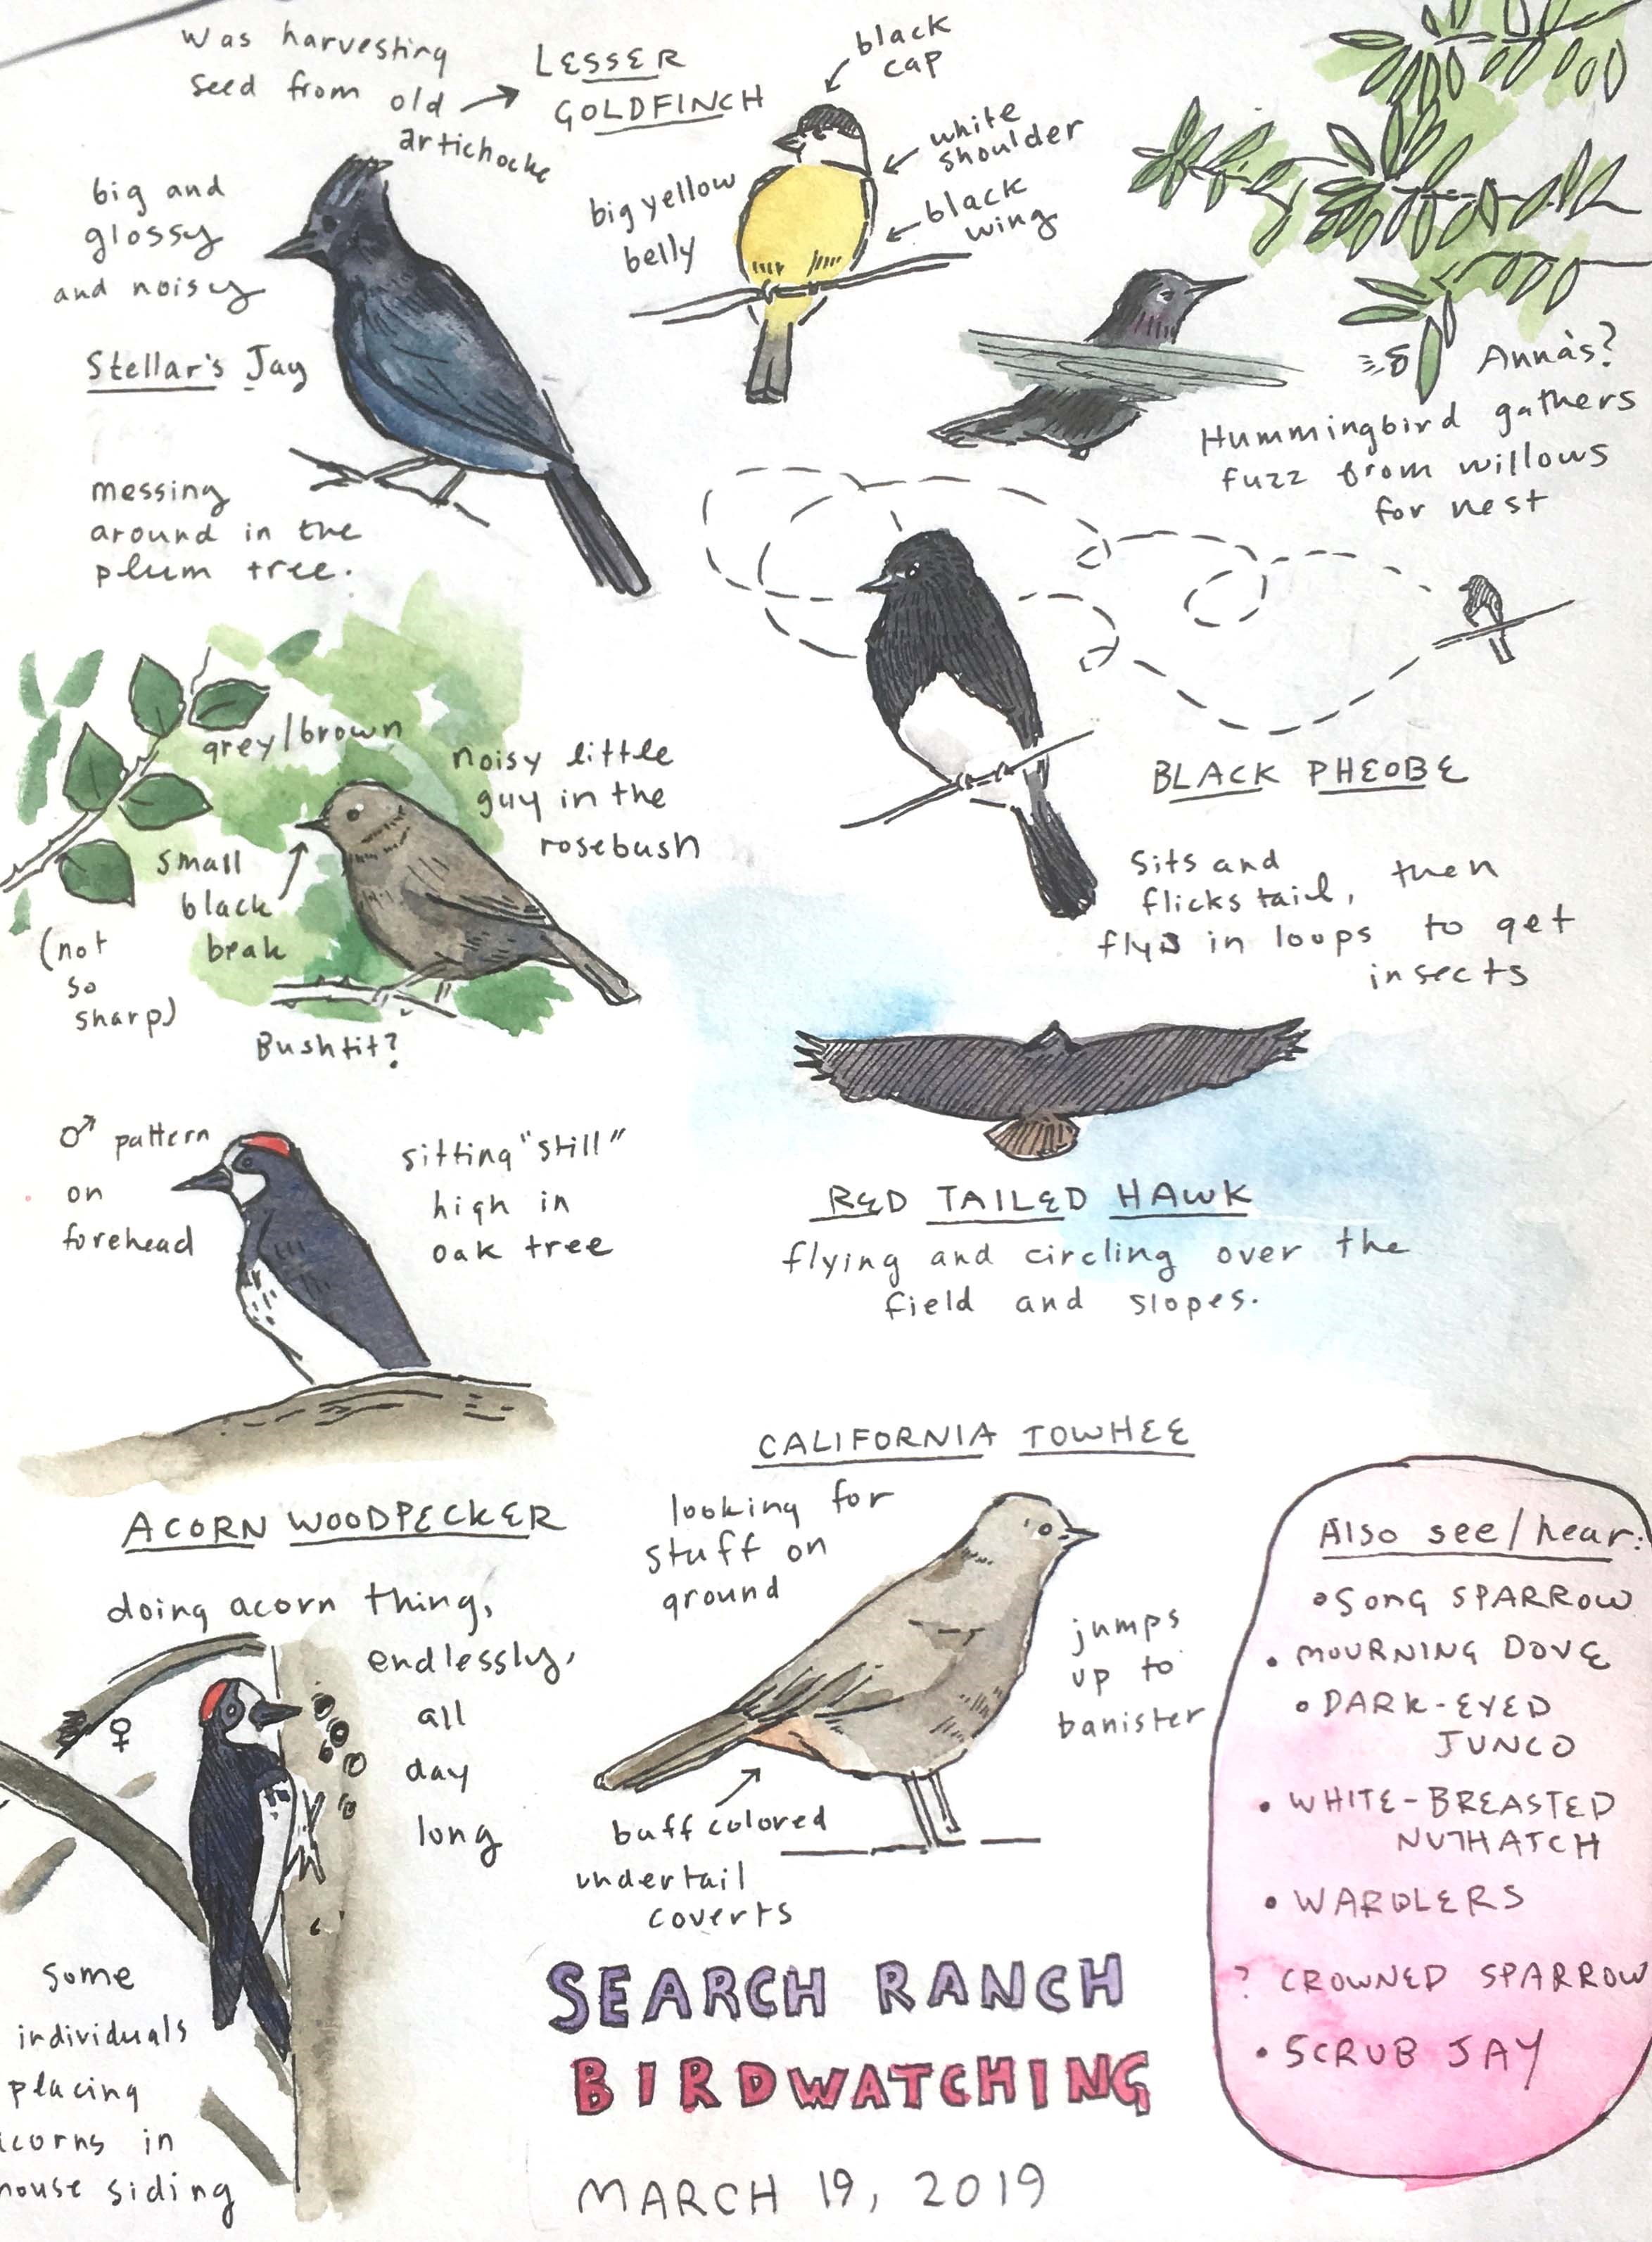 was harvesting
seed from old
artichocke
LESSER
GOLDFINCH
black
cap
white
shoulder
black
wing
big yellow
belly
big and
glossy
and noisy
Stellar's Jay
messing
around in the
plum tree.
Anna's?
Hummingbird gathers
fuzz from willows
for nest
BLACK PHEOBE
Sits and
flicks tail, then
flys in loops to get
insects
grey/brown
noisy little
guy in the
rosebush
small
black
beak
(not
so
sharp)
Bushtit?
♂ pattern
on
forehead
sitting "still"
high in
oak tree
RED TAILED HAWK
flying and circling over the
field and slopes.
ACORN WOODPECKER
doing acorn thing,
endlessly,
all
day
long
♀
some
individuals
placing
acorns in
house siding
CALIFORNIA TOWHEE
looking for
stuff on
ground
jumps
up to
banister
buff colored
undertail
coverts
Also see/hear:
• SONG SPARROW
• MOURNING DOVE
• DARK-EYED
JUNCO
• WHITE-BREASTED
NUTHATCH
• WARBLERS
? CROWNED SPARROW
• SCRUB JAY
SEARCH RANCH
BIRDWATCHING
MARCH 19, 2019